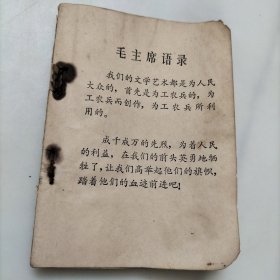 毛主席语录
我们的文学艺术都是为人民
大众的，首先是为工农兵的，为
工农兵而创作，为工农兵所利
用的。
成千成万的先烈，为着人民
的利益，在我们的前头英勇地牺
牲了，让我们高举起他们的旗帜，
踏着他们的血迹前进吧！